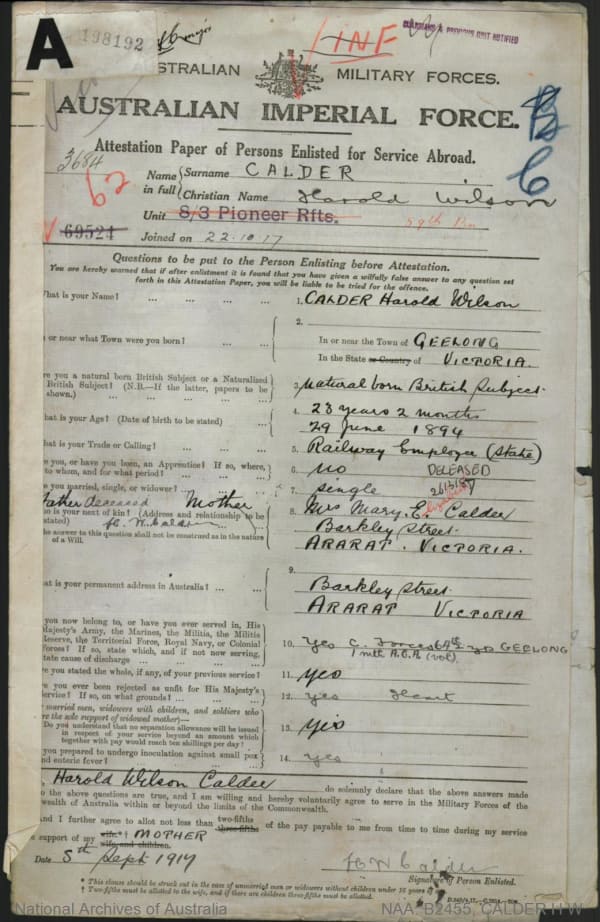 A 198192
INF
AUSTRALIAN MILITARY FORCES.
AUSTRALIAN IMPERIAL FORCE.
Attestation Paper of Persons Enlisted for Service Abroad.
3684
62
Name in full { Surname CALDER
Christian Name Harold Wilson
Unit 8/3 Pioneer Rfts. 59th Bn
69524
Joined on 22.10.17
Questions to be put to the Person Enlisting before Attestation.
You are hereby warned that if after enlistment it is found that you have given a wilfully false answer to any question set
forth in this Attestation Paper, you will be liable to be tried for the offence.
What is your Name? ... ... ... 1. CALDER Harold Wilson
2.
in or near what Town were you born? ... In or near the Town of GEELONG
In the State or Country of VICTORIA.
re you a natural born British Subject or a Naturalized
British Subject? (N.B.—If the latter, papers to be
shown.) ... ... ... 3. Natural born British Subject.
hat is your Age? (Date of birth to be stated) ... 4. 23 years 2 months
29 June 1894
hat is your Trade or Calling? ... ... 5. Railway Employee (State)
re you, or have you been, an Apprentice? If so, where,
to whom, and for what period? ... ... 6. no
DECEASED
re you married, single, or widower? ... 7. Single
Father deceased Mother
ho is your next of kin? (Address and relationship to be
stated)
he answer to this question shall not be construed as in the nature
of a Will.
8. Mrs Mary. E. Calder
Barkley Street.
ARARAT. VICTORIA.
9.
hat is your permanent address in Australia? ... Barkley Street.
ARARAT VICTORIA
you now belong to, or have you ever served in, His
Majesty's Army, the Marines, the Militia, the Militia
Reserve, the Territorial Force, Royal Navy, or Colonial
Forces? If so, state which, and if not now serving,
state cause of discharge ... ... 10. Yes C. Forces GEELONG
1 mth
re you stated the whole, if any, of your previous service? 11. yes
ve you ever been rejected as unfit for His Majesty's
Service? If so, on what grounds? ... ... 12. yes Heart
married men, widowers with children, and soldiers who
are the sole support of widowed mother)—
Do you understand that no separation allowance will be issued
in respect of your service beyond an amount which
together with pay would reach ten shillings per day? 13. yes
you prepared to undergo inoculation against small pox
and enteric fever? ... ... 14. yes
Harold Wilson Calder do solemnly declare that the above answers made
to the above questions are true, and I am willing and hereby voluntarily agree to serve in the Military Forces of the
wealth of Australia within or beyond the limits of the Commonwealth.
and I further agree to allot not less than two-fifths three-fifths of the pay payable to me from time to time during my service
support of my wife* MOTHER
wife and children.
Date 5th Sept 1917
H W Calder
Signature of Person Enlisted.
* This clause should be struck out in the case of unmarried men or widowers without children under 16 years of age.
† Two-fifths must be allotted to the wife, and if there are children three-fifths must be allotted.
National Archives of Australia NAA: B2455, CALDER H W